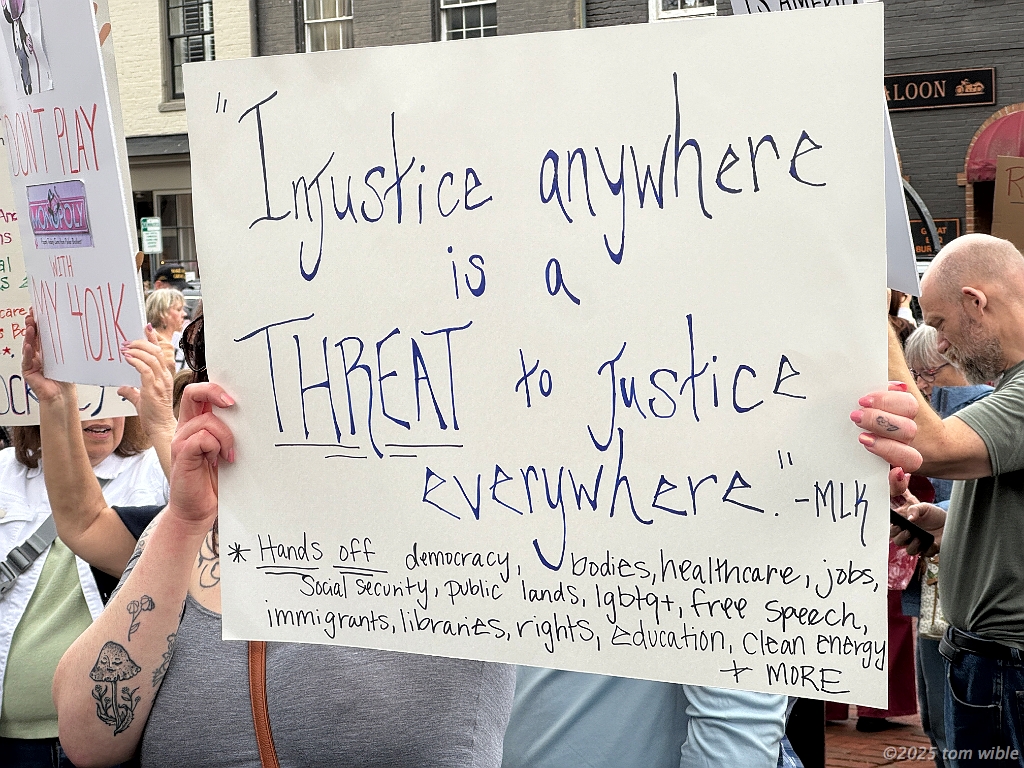 IS AMERICA
"Injustice anywhere
is a
THREAT to Justice
everywhere." -MLK
* Hands off democracy, bodies, healthcare, jobs,
Social security, public lands, lgbtq+, free speech,
immigrants, libraries, rights, education, clean energy
+ MORE
DON'T PLAY
MONOPOLY
WITH
MY 401K
ALOON
©2025 tom wible